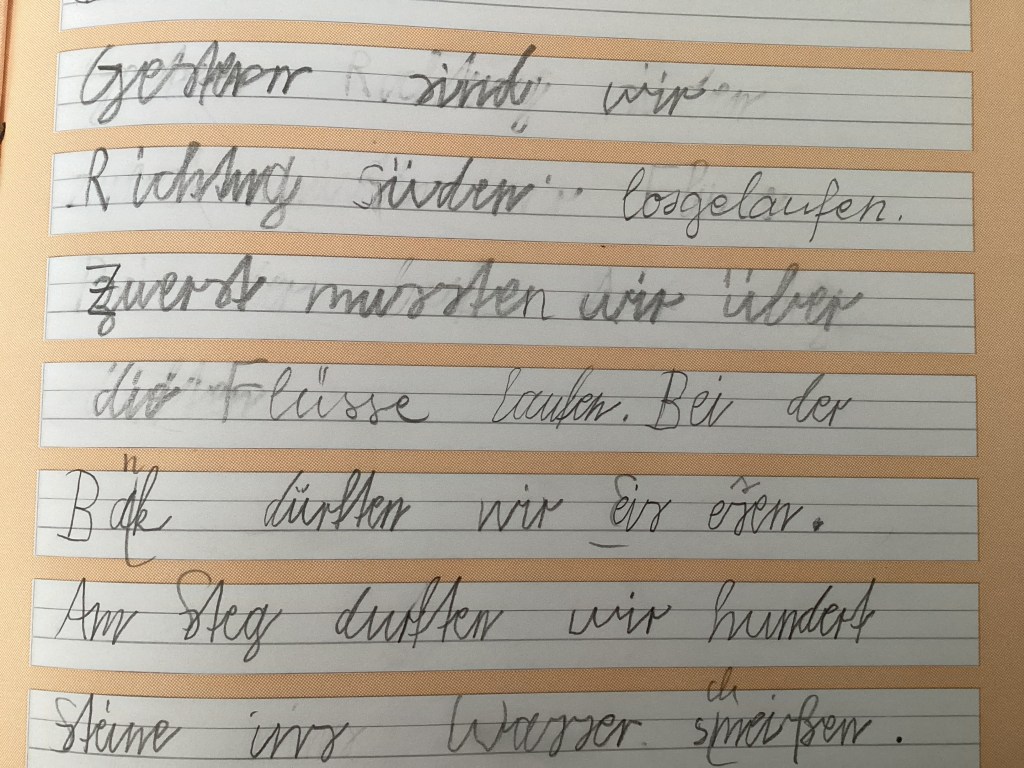 Gestern sind wir
Richtung Süden losgelaufen.
Zuerst mussten wir über
die Flüsse laufen. Bei der
Bank dürften wir Eis esen.
Am Steg durften wir hundert
steine ins Wasser schmeißen.